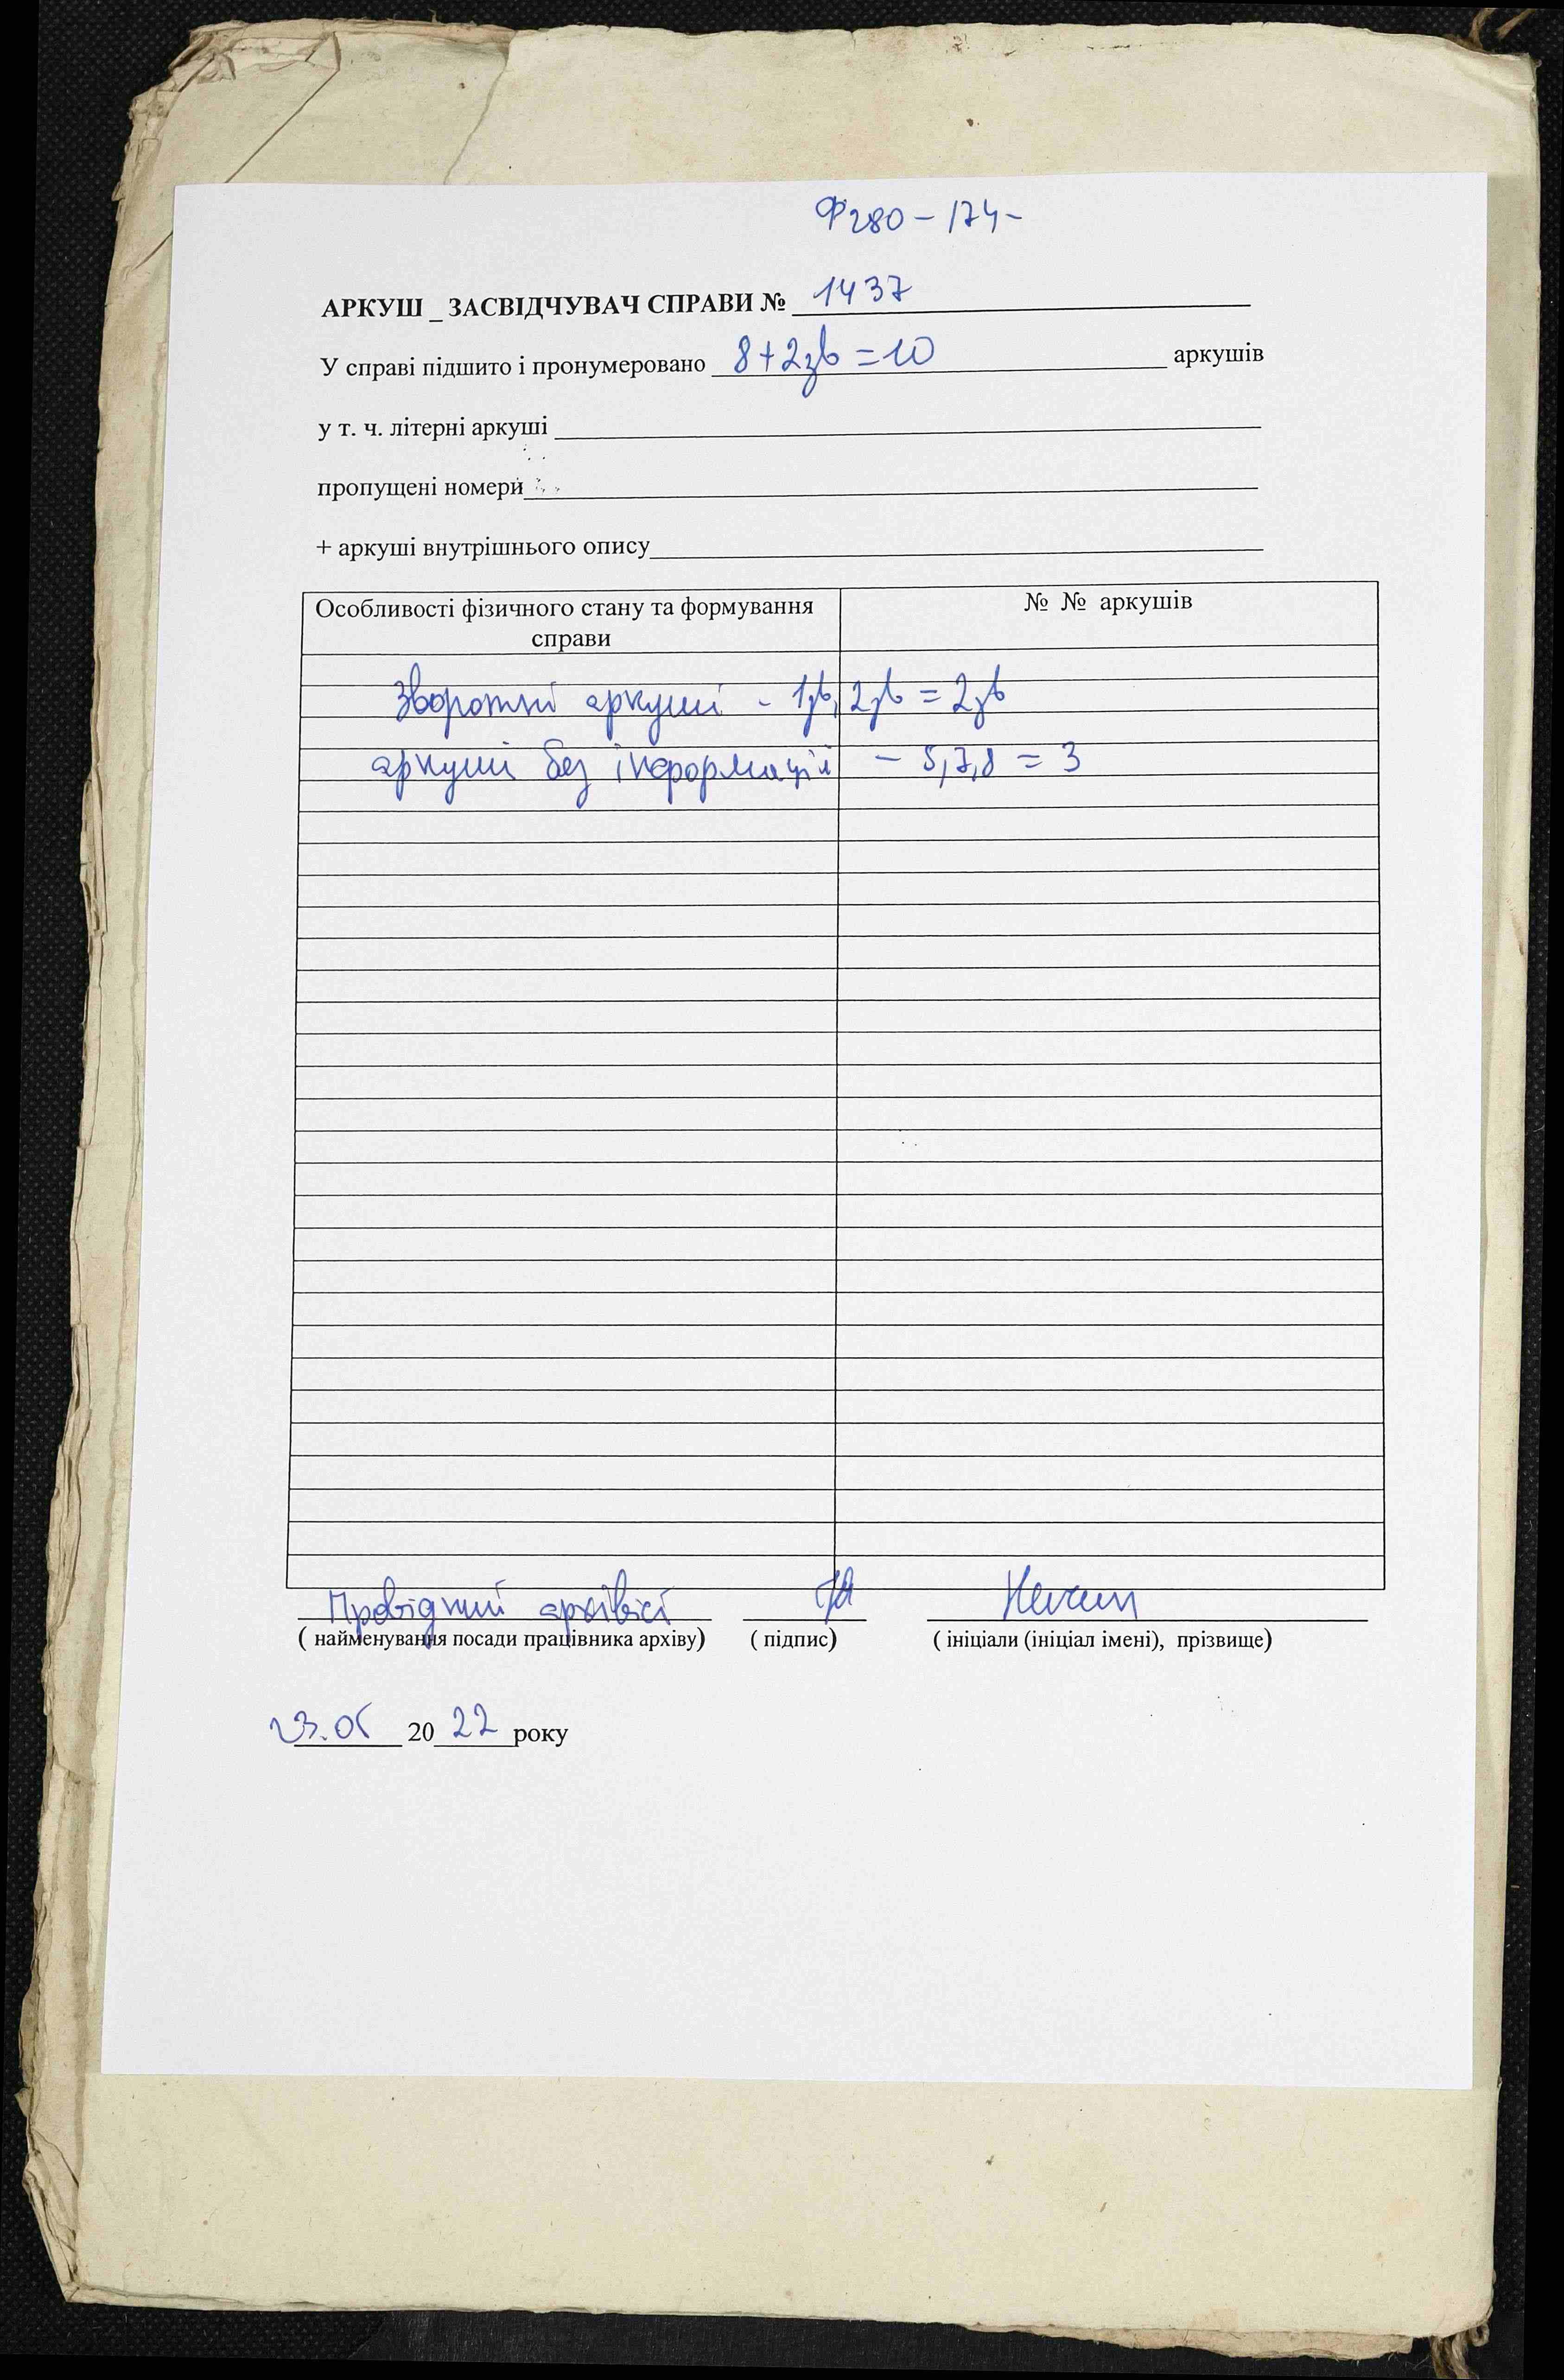 Ф280-174-
АРКУШ _ ЗАСВІДЧУВАЧ СПРАВИ № 1437
У справі підшито і пронумеровано 8+2зв=10 аркушів
у т. ч. літерні аркуші
пропущені номери
+ аркуші внутрішнього опису
Особливості фізичного стану та формування
справи
№ № аркушів
Зворотні аркуші - 1зв, 2зв = 2зв
аркуші без інформації - 5,7,8 = 3
Провідний архівіст
( найменування посади працівника архіву) ( підпис) ( ініціали (ініціал імені), прізвище)
23.05 2022 року